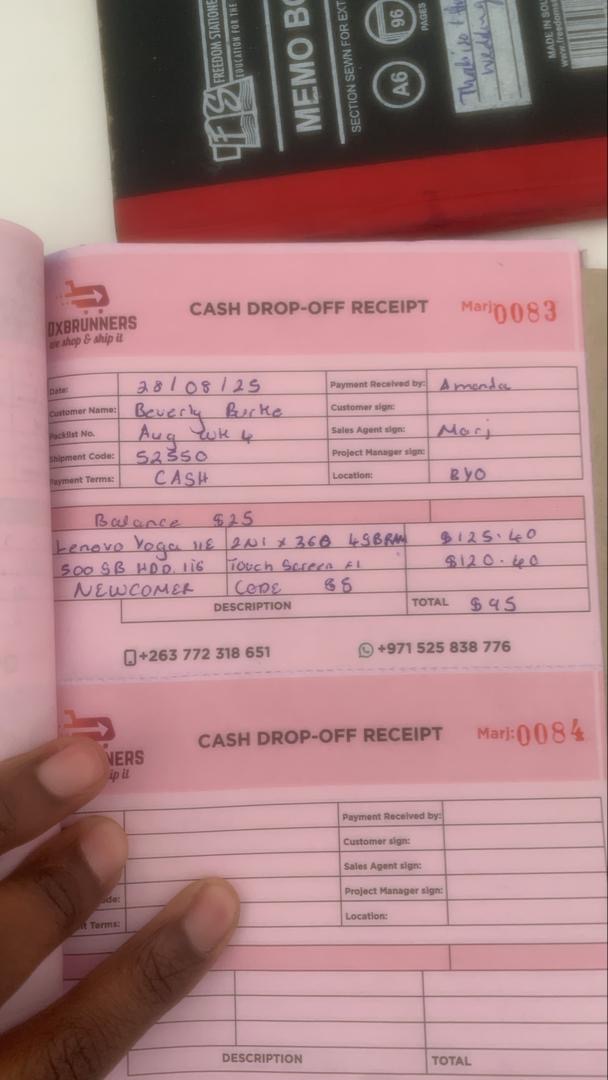 FREEDOM STATIONE
EDUCATION FOR THE
MEMO BO
SECTION SEWN FOR EXT
A6
96
PAGES
wedding
MADE IN SOU
www.freedoms
OXBRUNNERS
we shop & ship it
CASH DROP-OFF RECEIPT
Marj 0083
Date: 28/08/25 Payment Received by: Amanda
Customer Name: Beverly Burke Customer sign:
Packlist No. Aug wk 4 Sales Agent sign: Marj
Shipment Code: 52550 Project Manager sign:
Payment Terms: CASH Location: BYO
Balance $25
Lenovo Yoga 11E 2N1 x 360 4GBRAM $125.40
500 GB HDD 116 Touch Screen $120.40
NEWCOMER CODE $5
DESCRIPTION TOTAL $95
+263 772 318 651 +971 525 838 776
NNERS
ip it
CASH DROP-OFF RECEIPT
Marj: 0084
Payment Received by:
Customer sign:
Sales Agent sign:
de: Project Manager sign:
t Terms: Location:
DESCRIPTION TOTAL